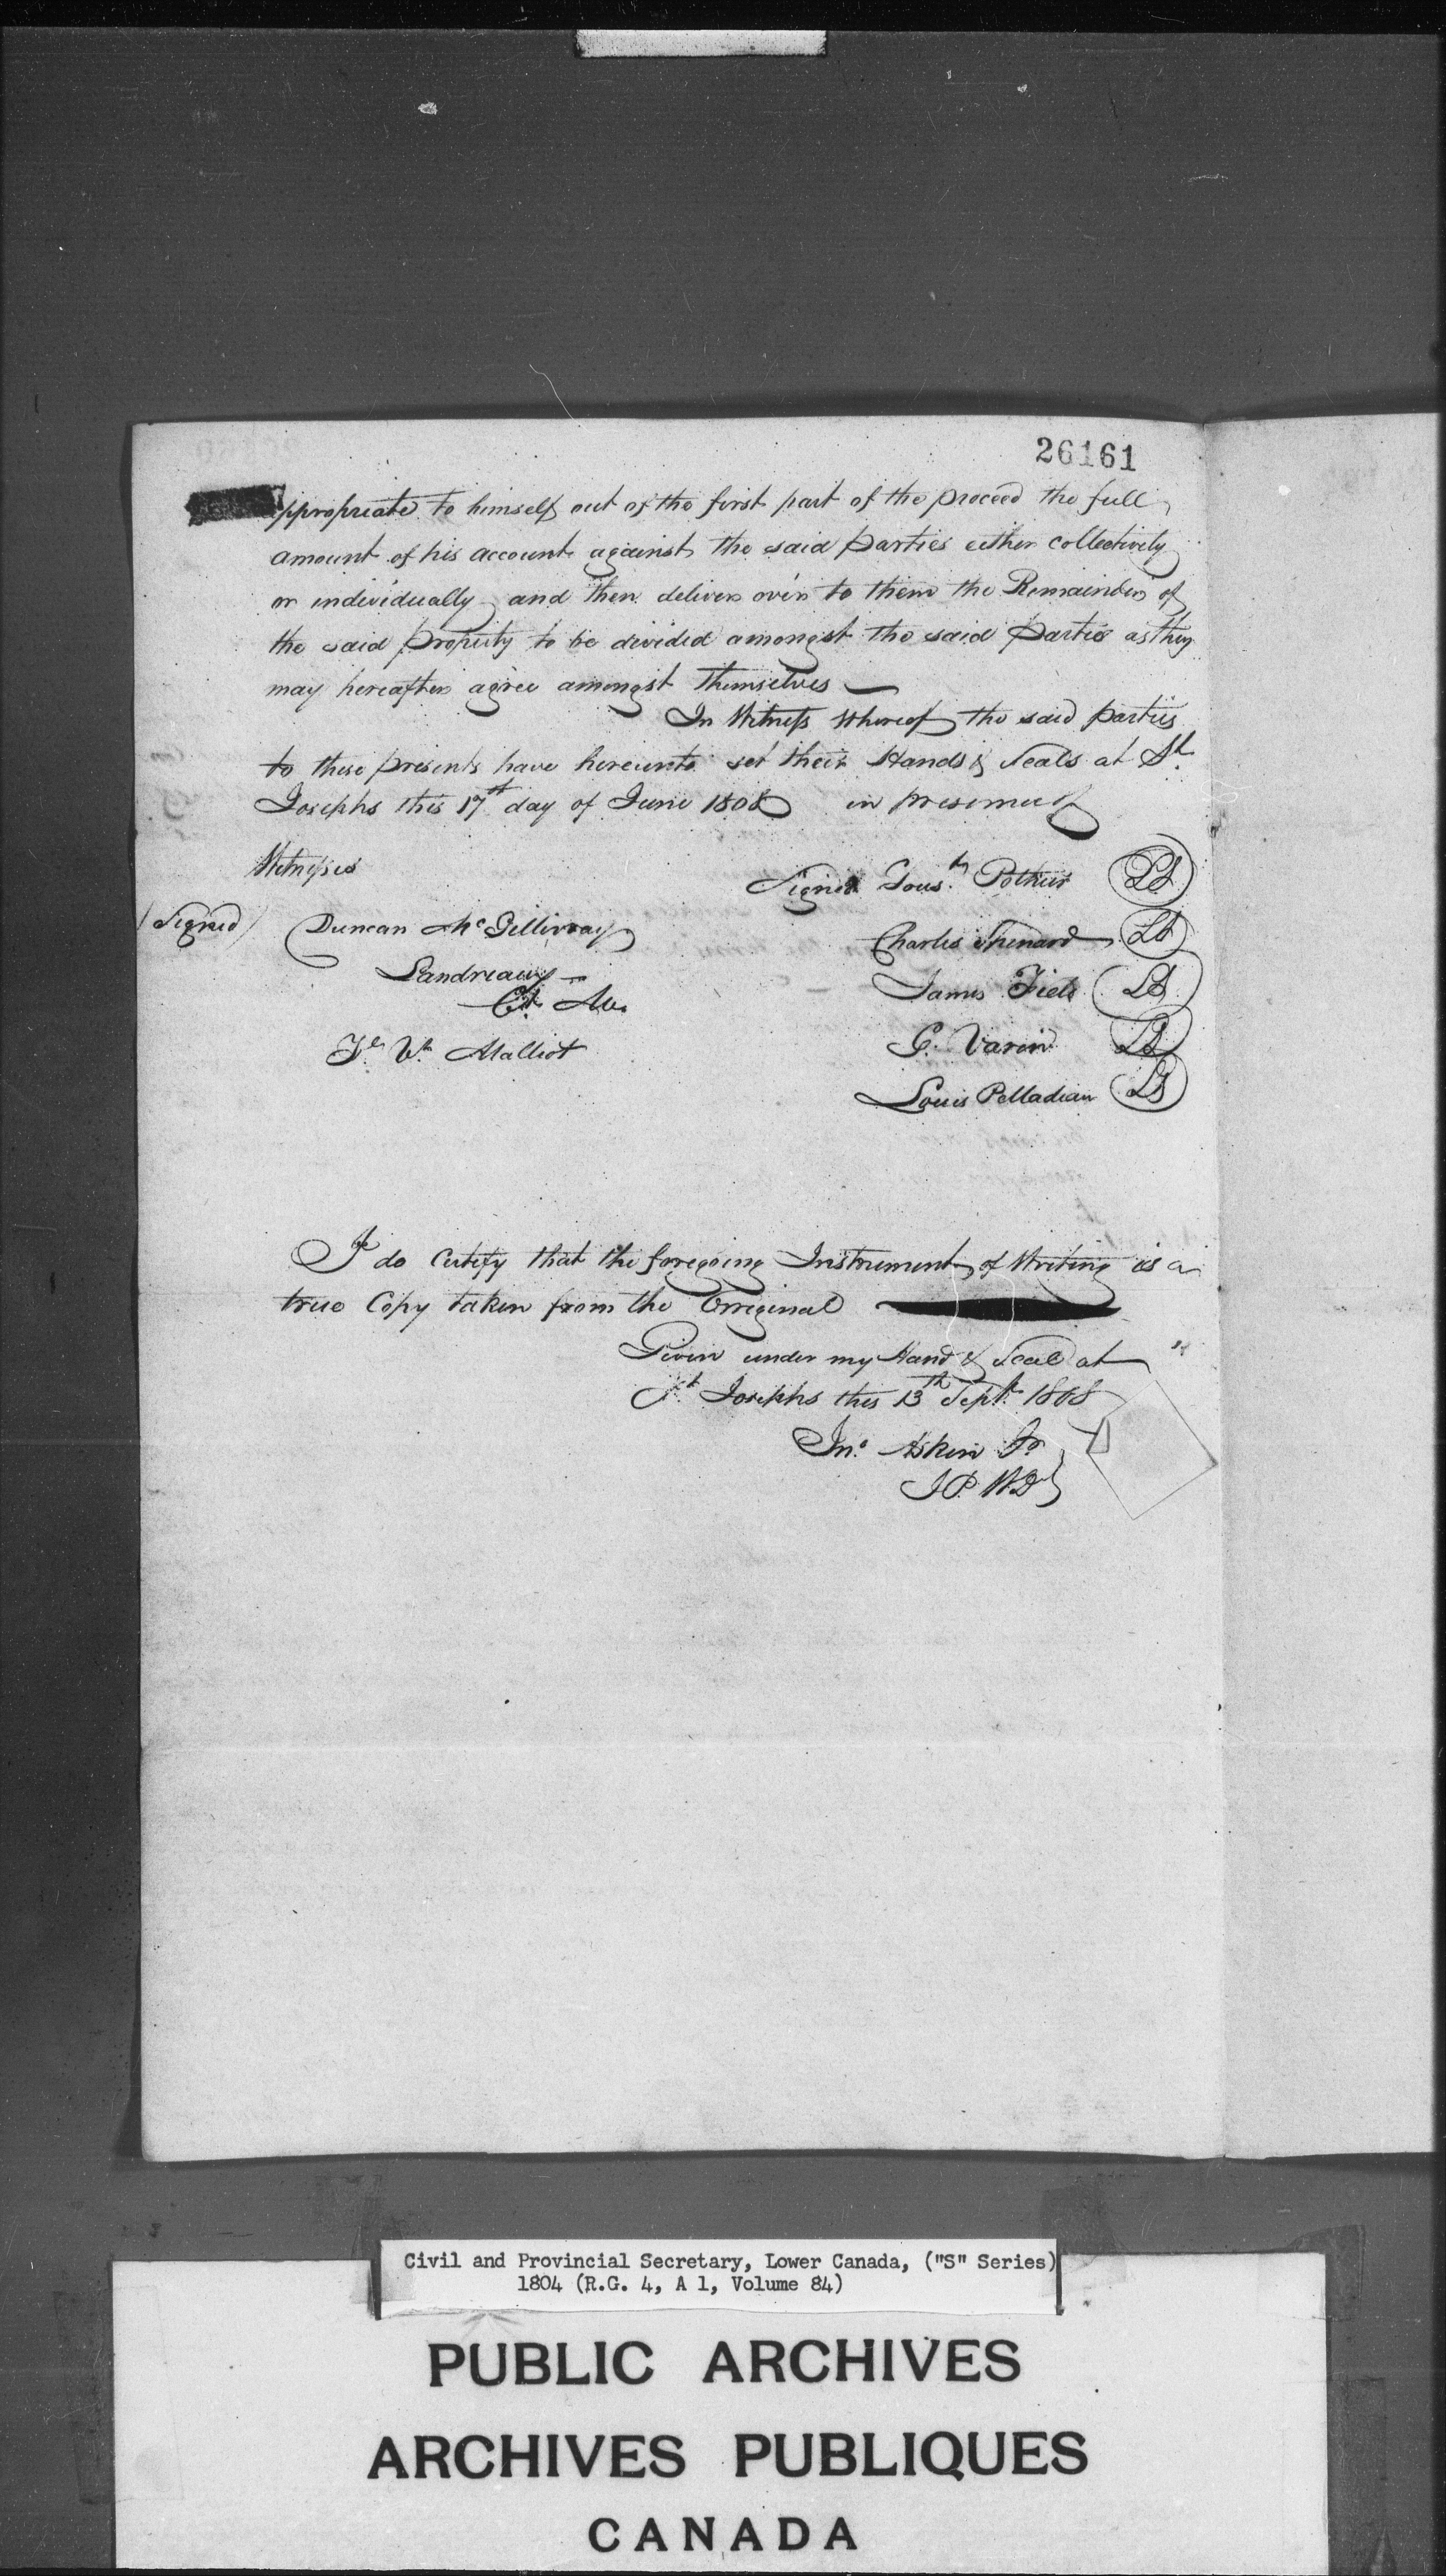 26161
appropriate to himself out of the first part of the proceed the full
amount of his account against the said parties either collectively
or individually and then deliver over to them the Remainder of
the said property to be divided amongst the said parties as they
may hereafter agree amongst themselves —
In Witness Whereof the said parties
to these presents have hereunto set their Hands & Seals at St.
Josephs this 17th day of June 1808 in presence of
Witnesses
Signed Tous.n Pothier LS
(Signed) Duncan McGillivray
Charles Shenard LS
Landreaux —
James Field LS
J. Vr. Malliot
G. Varin LS
Louis Pelladieau LS
I do Certify that the foregoing Instrument of Writing is a
true Copy taken from the Orriginal
Given under my Hand & Seal at
St. Josephs this 13th Sept. 1808
Jno. Askin Jr.
J P. W.D
Civil and Provincial Secretary, Lower Canada, ("S" Series)
1804 (R.G. 4, A 1, Volume 84)
PUBLIC ARCHIVES
ARCHIVES PUBLIQUES
CANADA